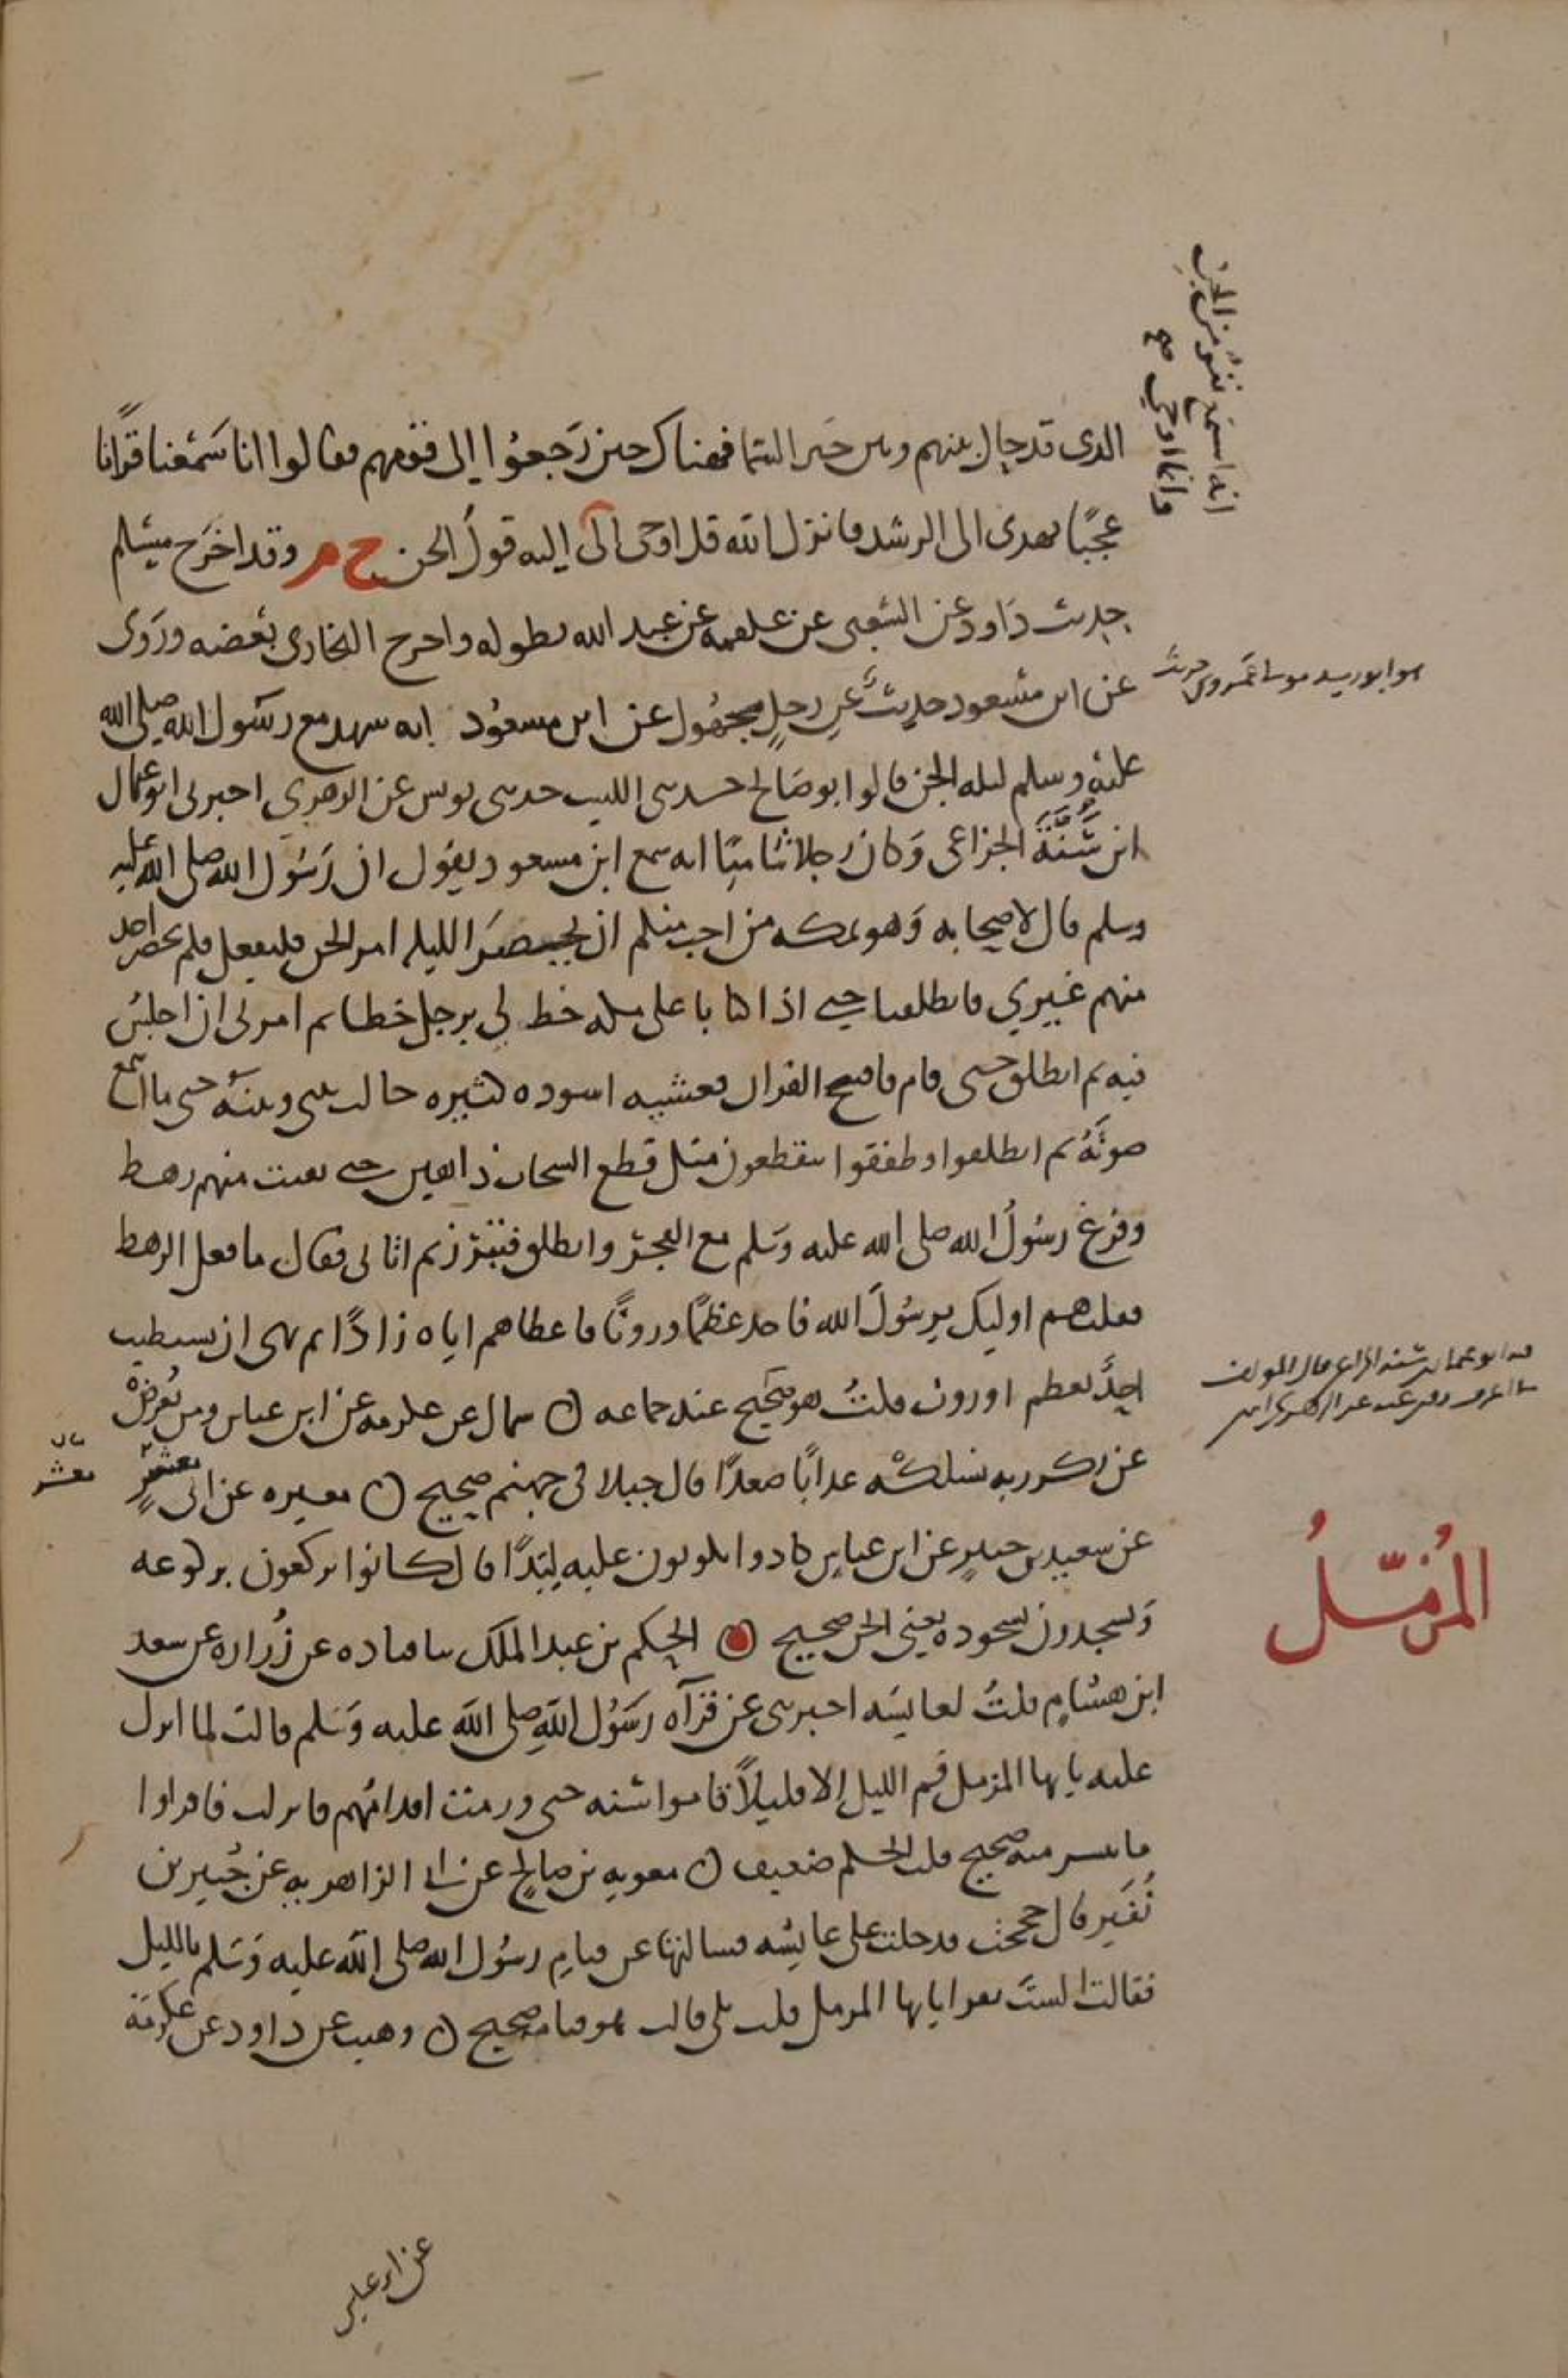 الذي قد حال بينهم وبين خبر السما فهناك حين رَجعوُا إلى قومهم فقالوا انا سَمْعنا قرانًا
عجبًا يهدى الى الرشد فانزل الله قل اوحى الىَّ وانما اوحى إليه قولُ الجن خ م وقد اخرَج مسْلم
حديث دَاود عن الشعبى عن علقمه عن عبد الله بطوله واخرج البخارى بعضه ورَوَى
عن ابن مسعود حديثٌ عن رجلٍ مجهُول عن ابن مسعوُد انه شهد مع رسُول الله صلى الله
عليه وسلم ليله الجن قالوا ابو صَالح حدثنى الليث حدثنى يونس عن الزهرى اخبرنى ابو عثمان
ابن سَنَّةَ الخزاعى وَكان رجلا شاميًا انه سمع ابن مسعود يقول ان رَسُول الله صلى الله عليه
وسلم قال لاصحابه وَهو بمكه من احب منكم ان يحضرَ الليله امر الجن فليفعل فلم يحضر احد
منهم غيري فانطلقنا حتى اذا كنا باعلى مكه خط لي برجله خطا ثم امرنى ان اجلسَ
فيه ثم انطلق حتى قام فافتتح القران فغشيته اسوده كثيره حالت بينى وبينَه حتى ما اسمع
صوتَهُ ثم انطلقوا وطفقوا يتقطعون مثل قطع السحاب ذاهبين حتى بقيت منهم رهط
وفرغ رسُولُ الله صلى الله عليه وَسَلم مع الفجر وانطلق فتبرز ثم اتانى فقال ما فعل الرهط
فقلت هم اوليك يرسُولَ الله فاخذ عظمًا وروثًا فاعطاهم اياه زادًا ثم نهى ان يستطيب
احدٌ بعظم او روث قلتُ هو صَحيح عند جماعه ن سماك عن عكرمه عن ابن عباس ومن يُعْرضْ
عن ذكر ربه نسلكْه عذابًا صعدًا قال جبلا فى جهنم صحيح ن مغيره عن ابى معشرٍ
عن سعيد بن جبيرٍ عن ابن عباسٍ كادوا يكونون عليه لِبَدًا قال كانوا يركعون بركوعه
وَيسجدون بسجوده يعني الجن صحيح ن الحكم بن عبد الملك نا قتاده عن زُراره عن سعد
ابن هشامٍ قلتُ لعايشَه اخبرينى عن قرآه رسَوُل اللهِ صلى الله عليه وَسَلم قالت لما انزل
عليه يايها المزمل قم الليل إلا قليلًا قاموا سَنه حتى ورمت اقدامُهم فانزلت فاقراوا
ما تيسر منه صحيح قلت الحكم ضعيف ن معويه بن صالحٍ عن ابى الزاهريه عن جُبير بن
نُفَير قال حججت فدخلت على عايشه فسالتها عن قيامِ رسُول الله صلى الله عليه وَسَلم بالليل
فقالت الستَ تقرا يايها المزمل قلت بلى قالت هو قيامه صحيح ن وهيب عن داود عن عكرمة
انه استمع نفرٌ من الجن
وانما اوحي صح
المُزمّلُ
معشر